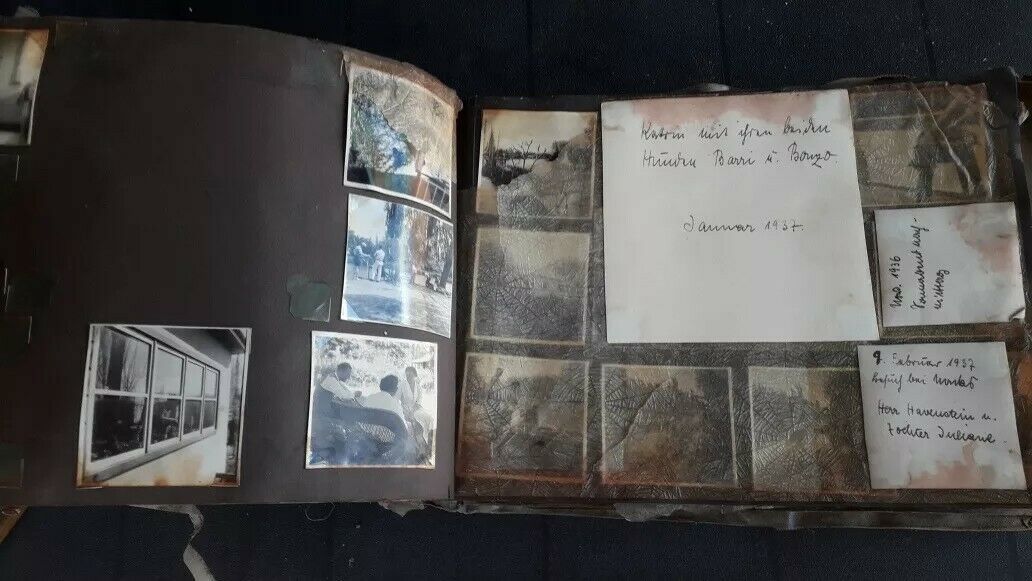 Katrin mit ihren beiden
Hunden Barri u. Bonzo.
Januar 1937.
Nov. 1936
9. Februar 1937
Besuch bei
Herr Havenstein u.
Tochter Juliane.